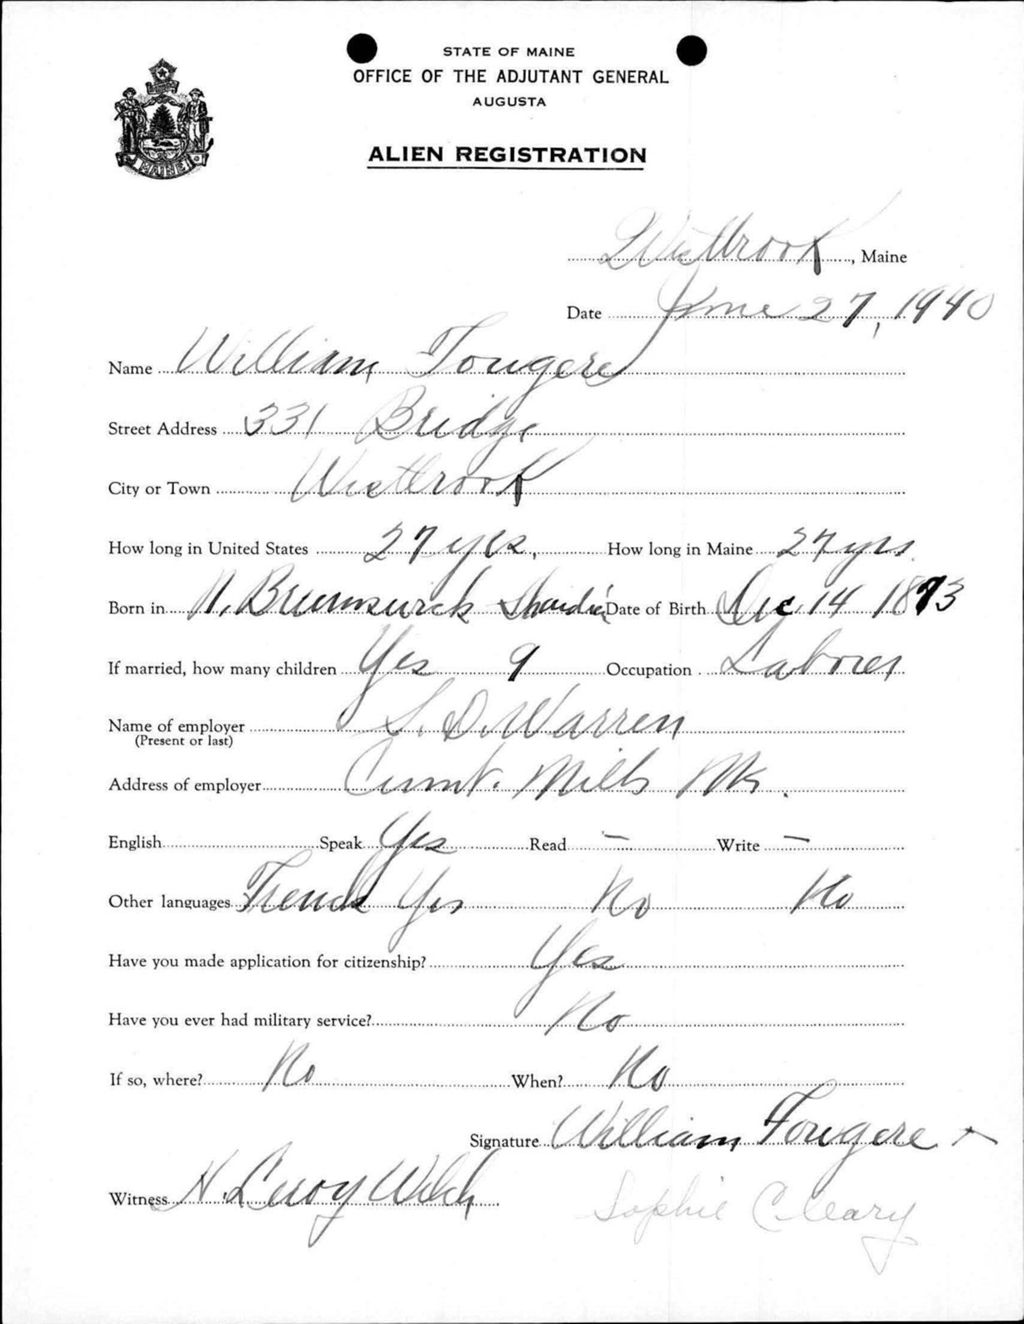 STATE OF MAINE
OFFICE OF THE ADJUTANT GENERAL
AUGUSTA
ALIEN REGISTRATION
MAINE
Westbrook, Maine
Date June 27, 1940
Name William Fougere
Street Address 331 Bridge
City or Town Westbrook
How long in United States 27 yrs, How long in Maine 27 yrs.
Born in N. Brunswick Date of Birth Dec 14 1873
If married, how many children Yes 9 Occupation Laborer
Name of employer S. D. Warren
(Present or last)
Address of employer Cumb. Mills Me.
English Speak Yes Read — Write —
Other languages French Yes No No
Have you made application for citizenship? Yes
Have you ever had military service? No
If so, where? No When? No
Signature William Fougere x
Witness N. Leroy Welch
Sophie C. Leary